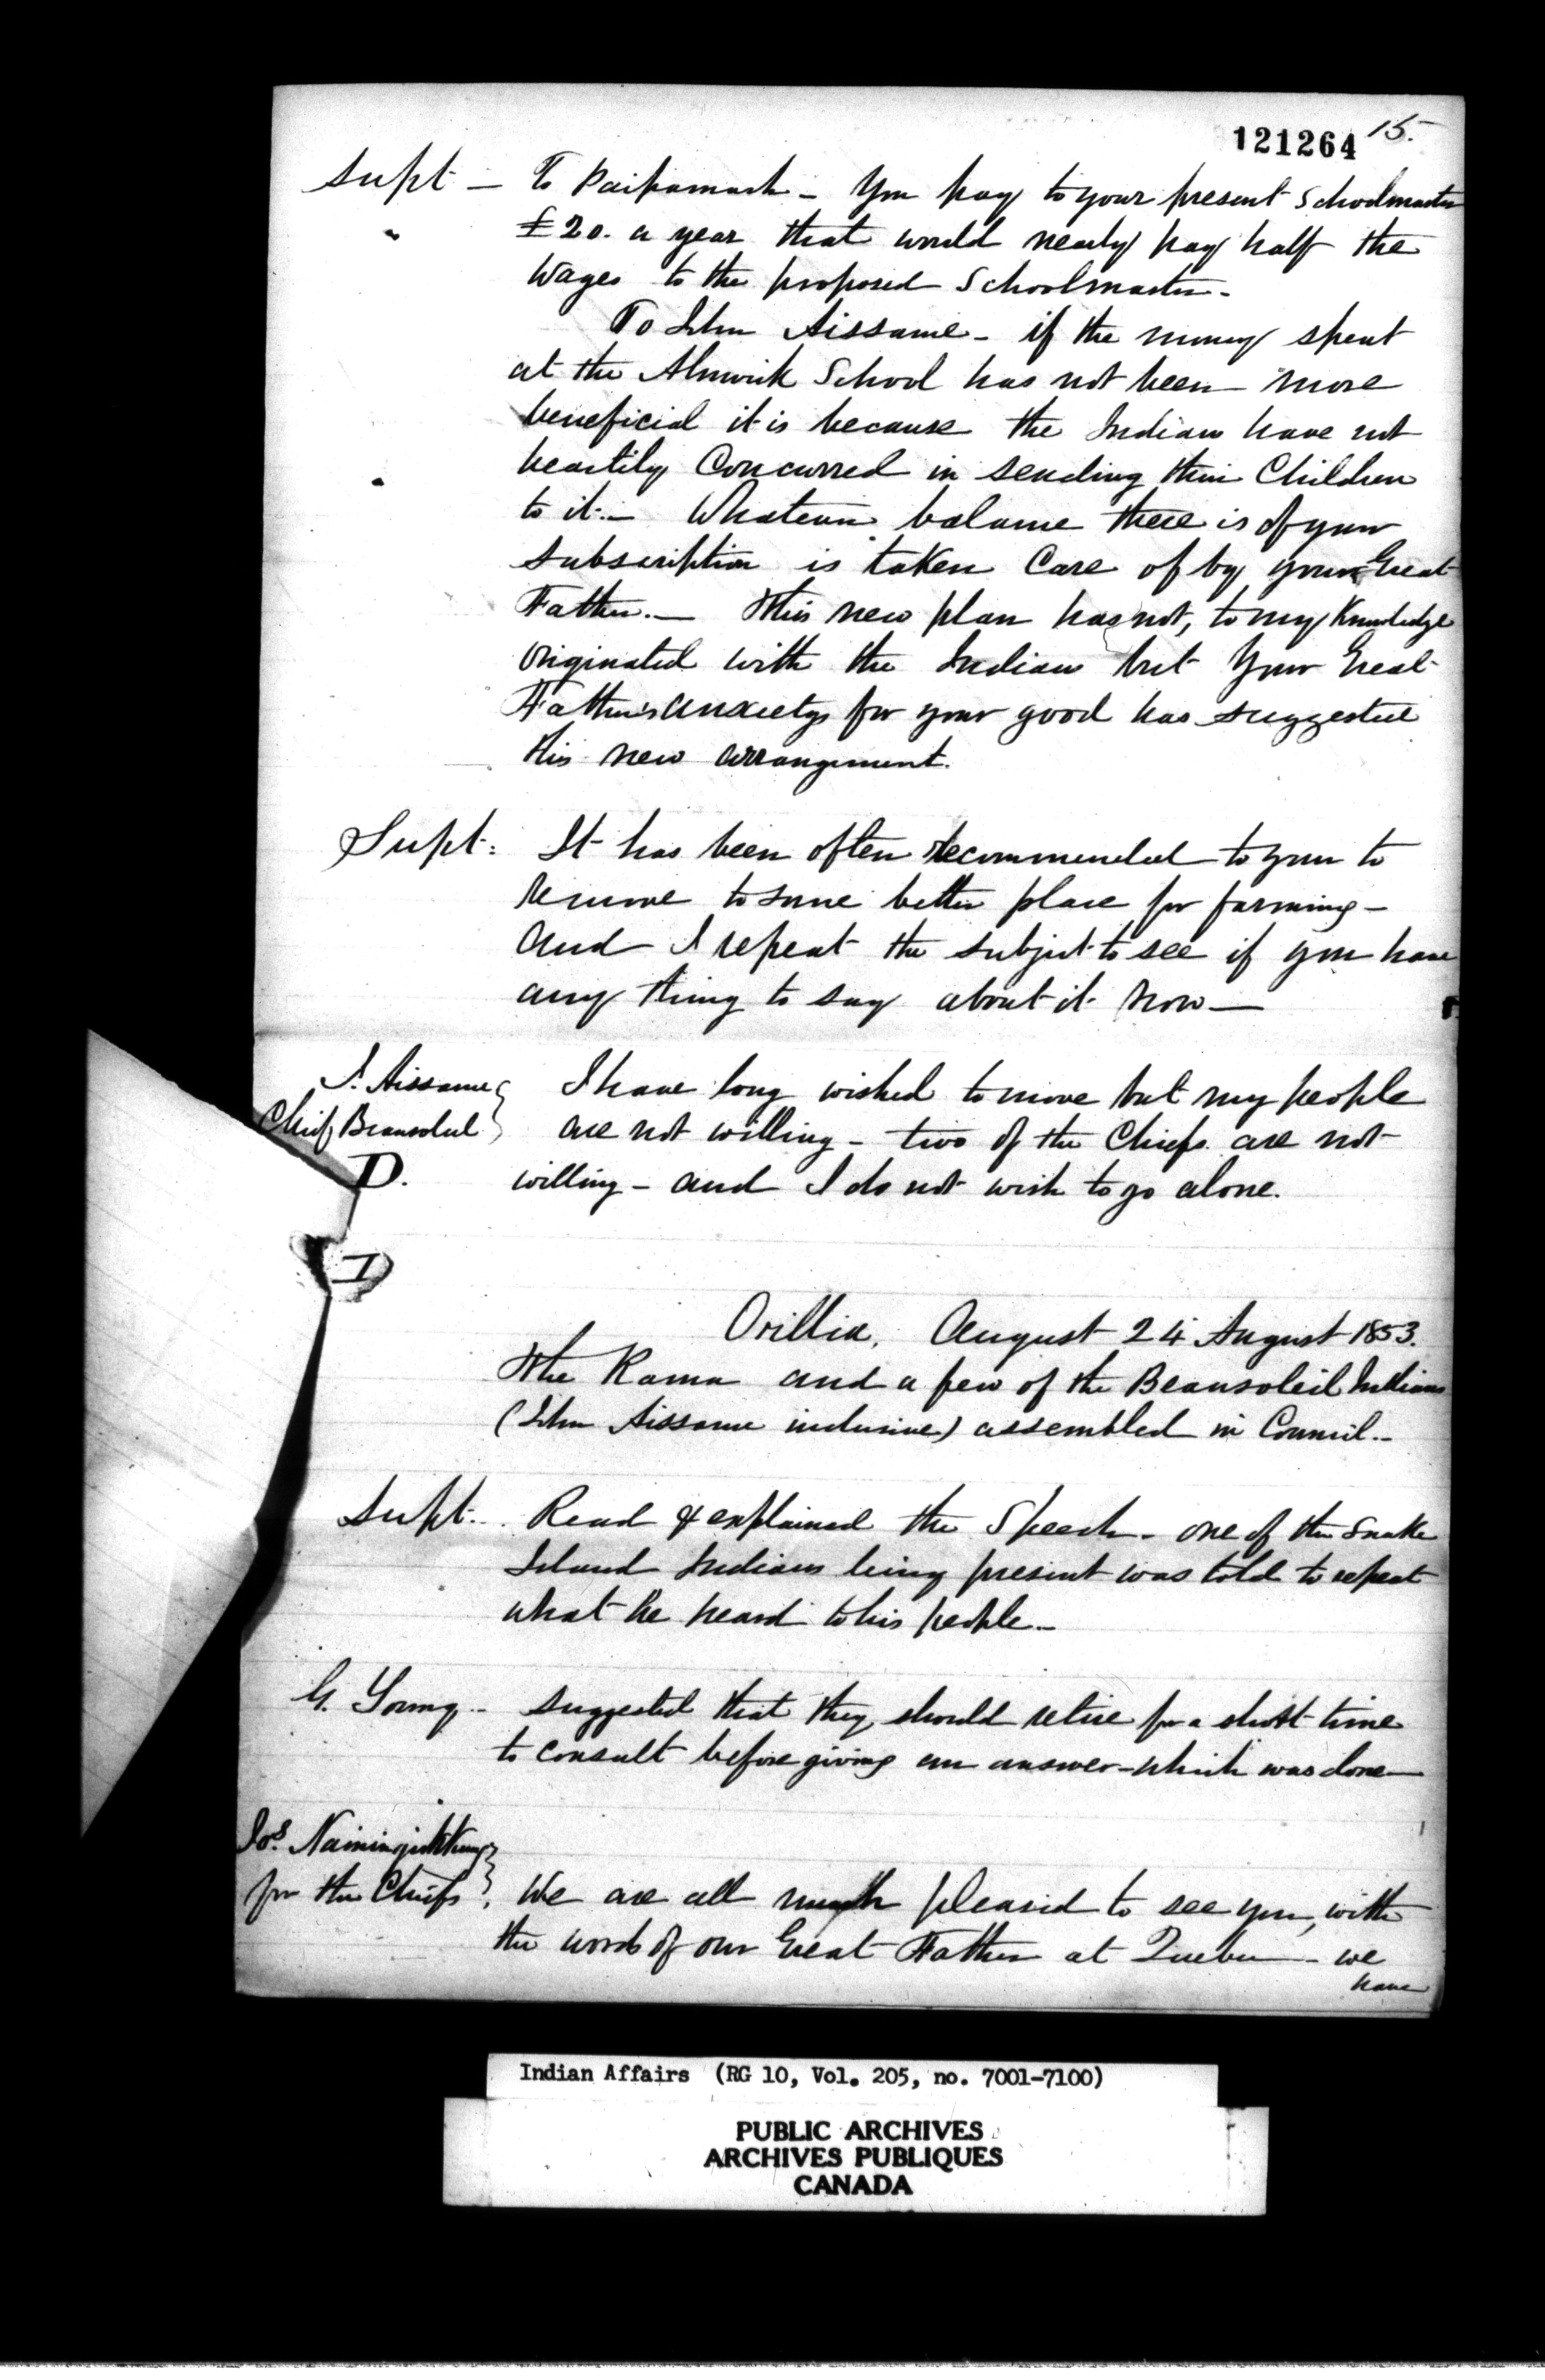 121264 15.
Supt — To Paipamash – You pay to your present Schoolmaster
£20. a year that would nearly pay half the
Wages to the proposed Schoolmaster.
To John Aissame – if the money spent
at the Alnwick School has not been more
beneficial it is because the Indians have not
heartily Concurred in sending their Children
to it.– Whatever balance there is of your
subscription is taken Care of by your Great
Father. — This new plan has not, to my Knowledge
originated with the Indians but Your Great
Father's anxiety for your good has suggested
this new arrangement.
Supt: It has been often recommended to you to
remove to some better place for farming –
And I repeat the subject to see if you have
any thing to say about it now —
J. Aissame
Chief Beausoleil
I have long wished to move but my people
are not willing – two of the Chiefs are not
willing – and I do not wish to go alone.
D.
D
Orillia, August 24 August 1853.
The Rama and a few of the Beausoleil Indians
(John Aissame inclusive) assembled in Council.–
Supt. Read & explained the Speech – one of the Snake
Island Indians being present was told to repeat
what he heard to his people.–
G. Young – suggested that they should retire for a short time
to consult before giving an answer – which was done —
Jos.
for the Chiefs, We are all much pleased to see you, with
the words of our Great Father at Quebec – we
have
Indian Affairs (RG 10, Vol. 205, no. 7001-7100)
PUBLIC ARCHIVES
ARCHIVES PUBLIQUES
CANADA